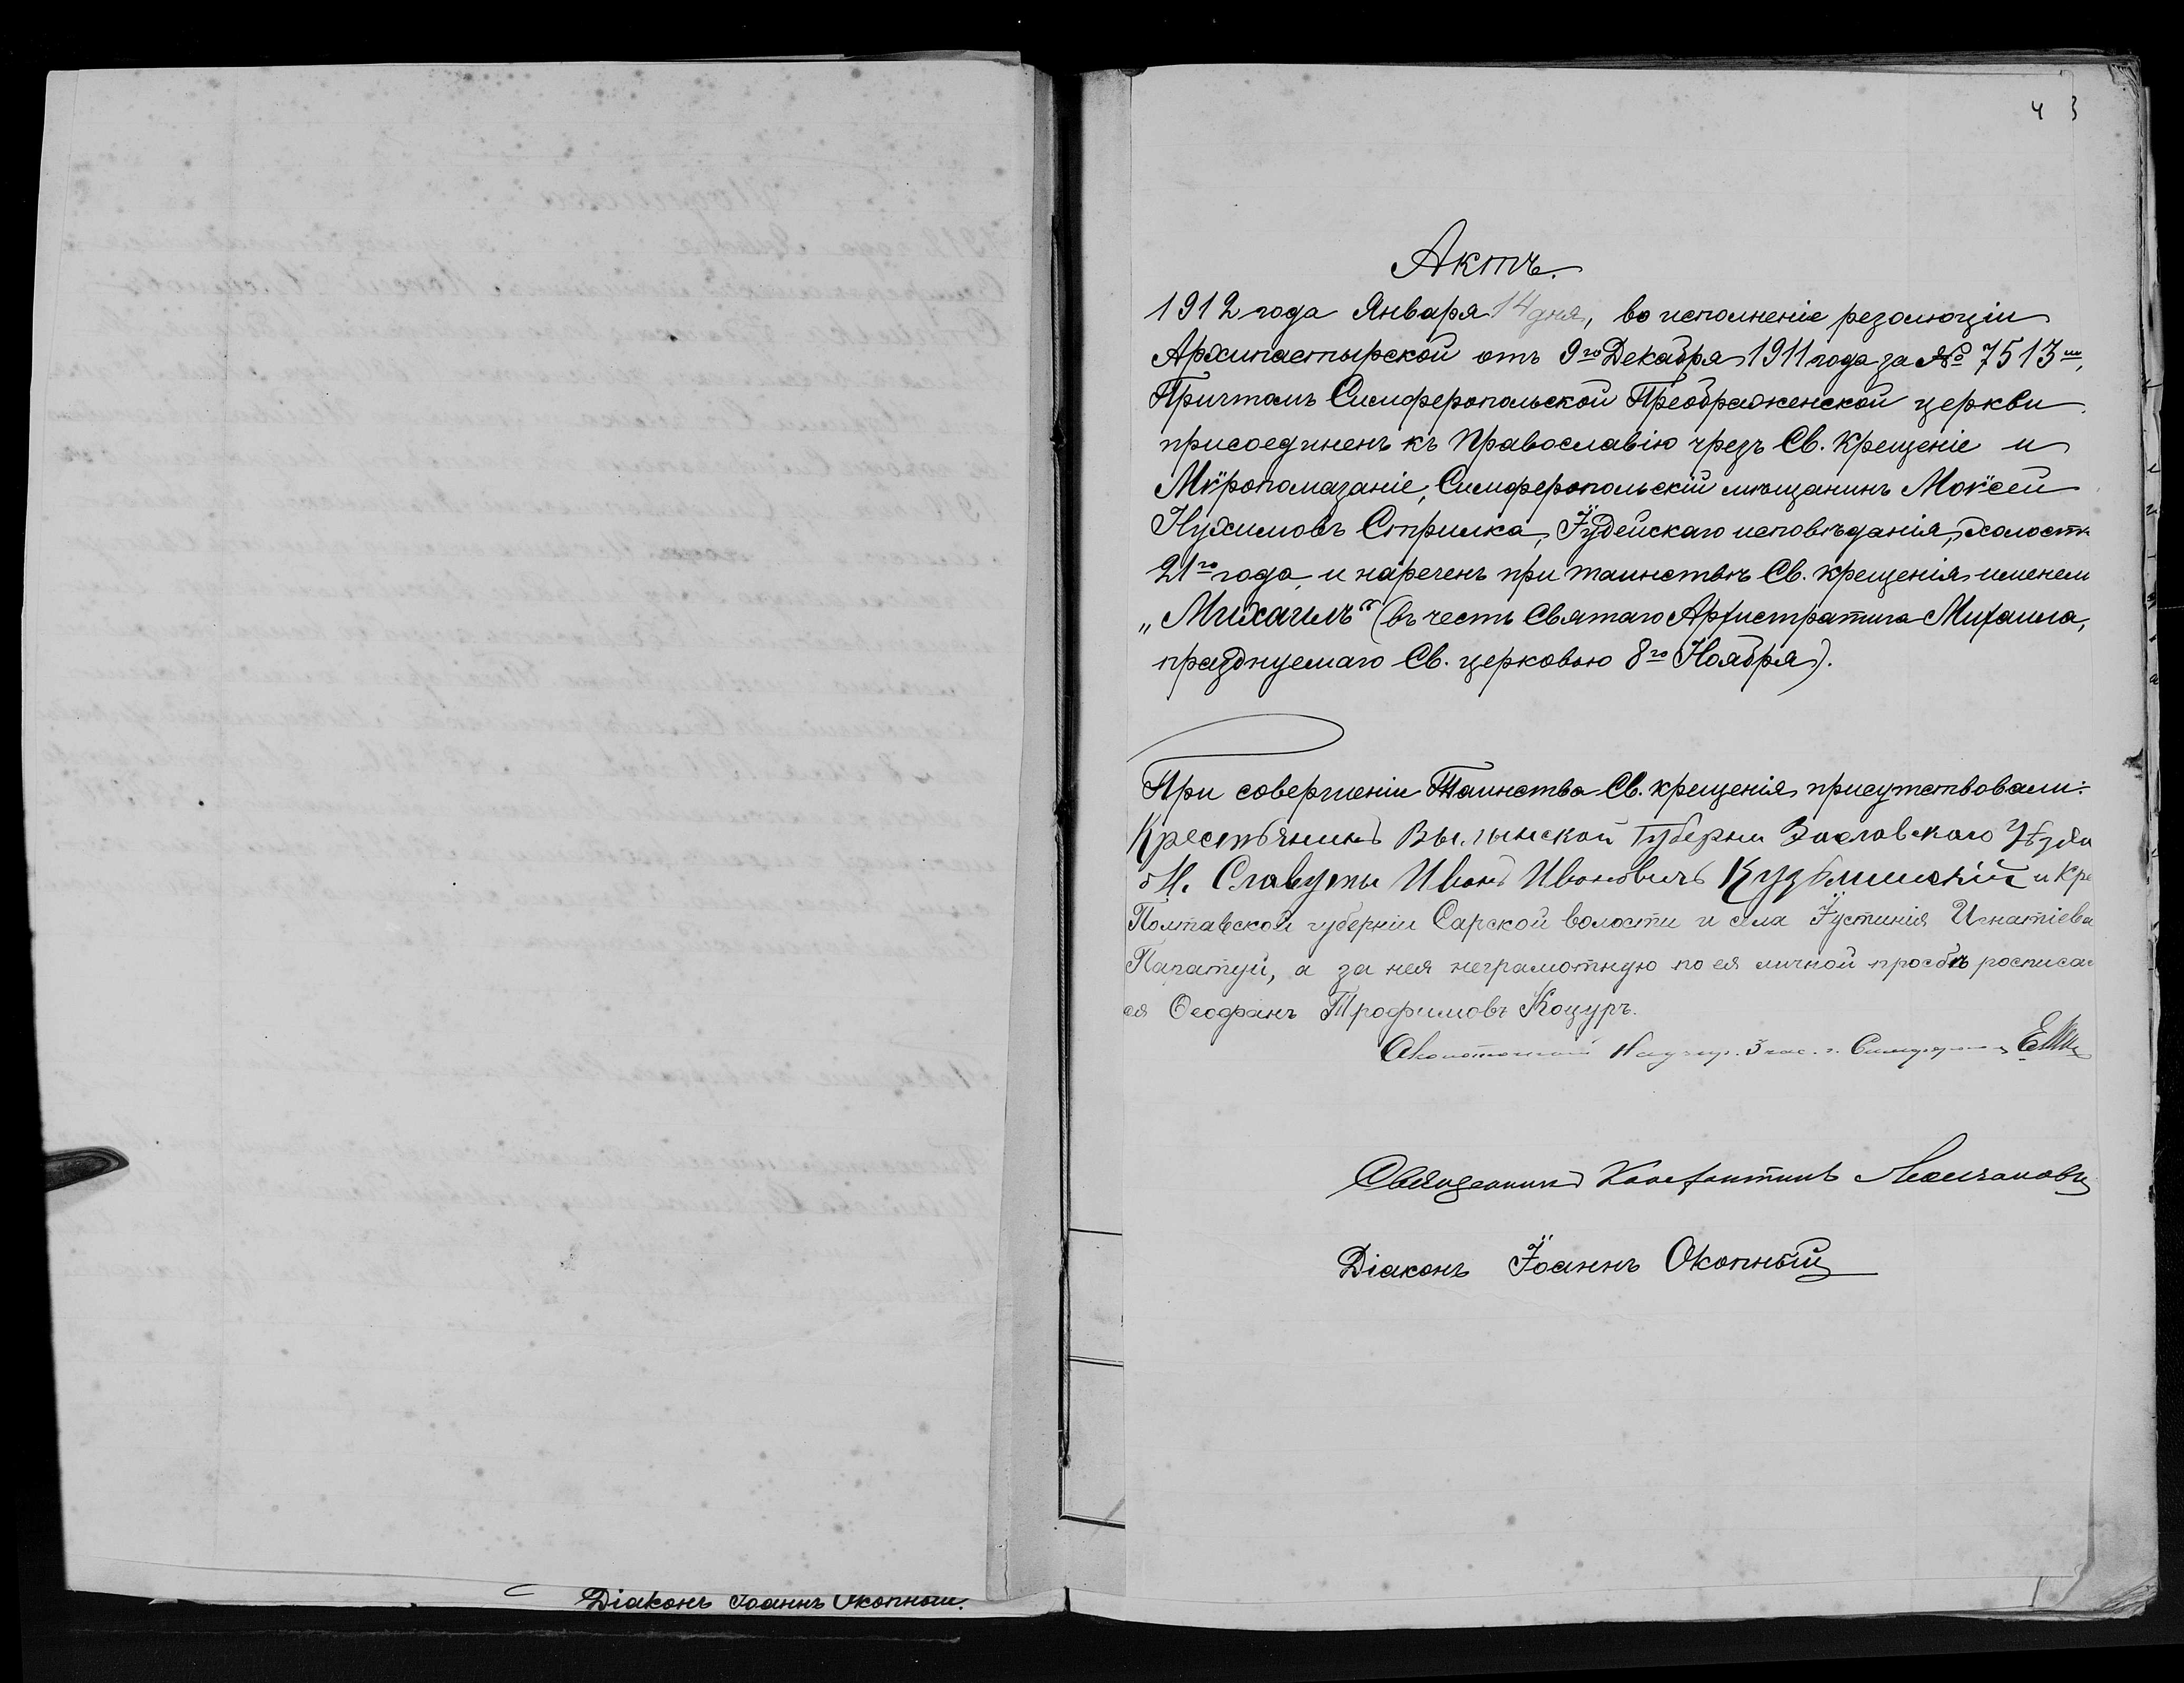 4 3
Актъ.
1912 года Января 14 дня, во исполненіе резолюціи
Архипастырской отъ 9го Декабря 1911 года за № 7513м,
Причтомъ Симферопольской Преображенской церкви
присоединенъ къ Православію чрезъ Св. Крещеніе и
Мѵропомазаніе, Симферопольскій мѣщанинъ Моѵсей
Нухимовъ Стрилка, Іудейскаго исповѣданія, холостъ
21го года и нареченъ при таинствѣ Св. Крещенія именем
„Михаилъ“ (въ честь Святаго Архистратига Михаила,
празднуемаго Св. церковью 8го Ноября).
При совершеніи Таинства Св. крещенія присутствовали:
Крестьянинъ Волынской Губерни Заславскаго Уѣзда
М. Славуты Иванъ Ивановичъ Кузьминскій и кре
Полтавской губерніи Сарской волости и села Іустинія Игнатіева
Паратуй, а за нея неграмотную по ея личной просьбѣ росписал
ся Ѳеофанъ Трофимовъ Коцуръ.
Околоточный Надзир. 3 час. г. Симферополя
Священникъ Константинъ
Діаконъ Іоаннъ Окопный
Діаконъ Іоаннъ Окопный.